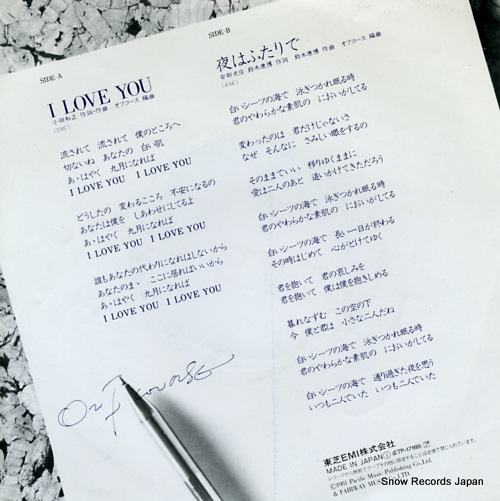 SIDE-A
I LOVE YOU
小田和正 作詞・作曲 オフコース 編曲
流されて 流されて 僕のところへ
切ないね あなたの 白い肌
あゝはやく 九月になれば
I LOVE YOU I LOVE YOU
どうしたの 変わるこころ 不安になるの
あなたは僕を しあわせにしてるよ
あゝはやく 九月になれば
I LOVE YOU I LOVE YOU
誰もあなたの代わりになれはしないから
あなたのまゝ ここに居ればいいから
あゝはやく 九月になれば
I LOVE YOU I LOVE YOU
OFF COURSE
SIDE-B
夜はふたりで
安部光俊 鈴木康博 作詞 鈴木康博 作曲 オフコース 編曲
白いシーツの海で 泳ぎつかれ眠る時
君のやわらかな素肌の においがしてる
変わったのは 君だけじゃないさ
なぜ そんなに さみしい眼をするの
そのままでいい 移りゆくままに
愛は二人のあと 追いかけてきただろう
白いシーツの海で 泳ぎつかれ眠る時
君のやわらかな素肌の においがしてる
白いシーツの海で 長い一日が終わる
その時はじめて 心がとけてゆく
君を抱いて 君の哀しみを
君を抱いて 僕は僕を抱きしめる
暮れなずむ この空の下
今 僕と君は 小さな二人だね
白いシーツの海で 泳ぎつかれ眠る時
君のやわらかな素肌の においがしてる
白いシーツの海で 通り過ぎた夜を思う
いつも二人でいた いつも二人でいた
東芝EMI株式会社
MADE IN JAPAN
ETP-17169
Ⓟ1981 Pacific Music Publishing Co. Ltd.
& FAIRWAY MUSIC
Snow Records Japan